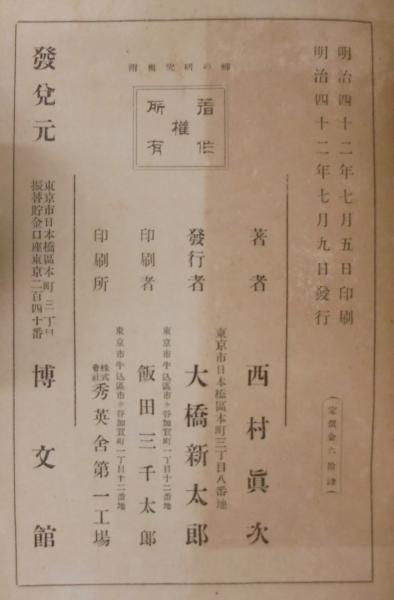 明治四十二年七月五日印刷
明治四十二年七月九日發行
(定價金六拾錢)
著者 西村眞次
東京市日本橋區本町三丁目八番地
發行者 大橋新太郎
東京市牛込區市ヶ谷加賀町一丁目十二番地
印刷者 飯田三千太郎
東京市牛込區市ヶ谷加賀町一丁目十二番地
印刷所 株式會社 秀英舍第一工場
の研究奥附
著作權所有
發兌元
東京市日本橋區本町三丁目
振替貯金口座東京二百四十番
博文館